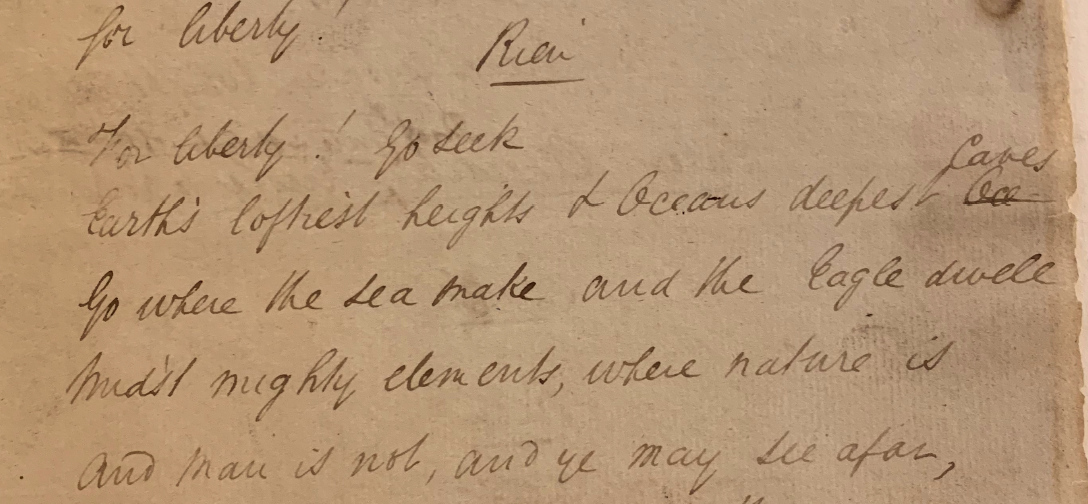 for liberty!
Rien
For liberty! Go seek
Caves
Earth's loftiest heights & Oceans deepest
Go where the sea snake and the Eagle dwell
Midst mighty elements, where nature is
And Man is not, and ye may see afar,